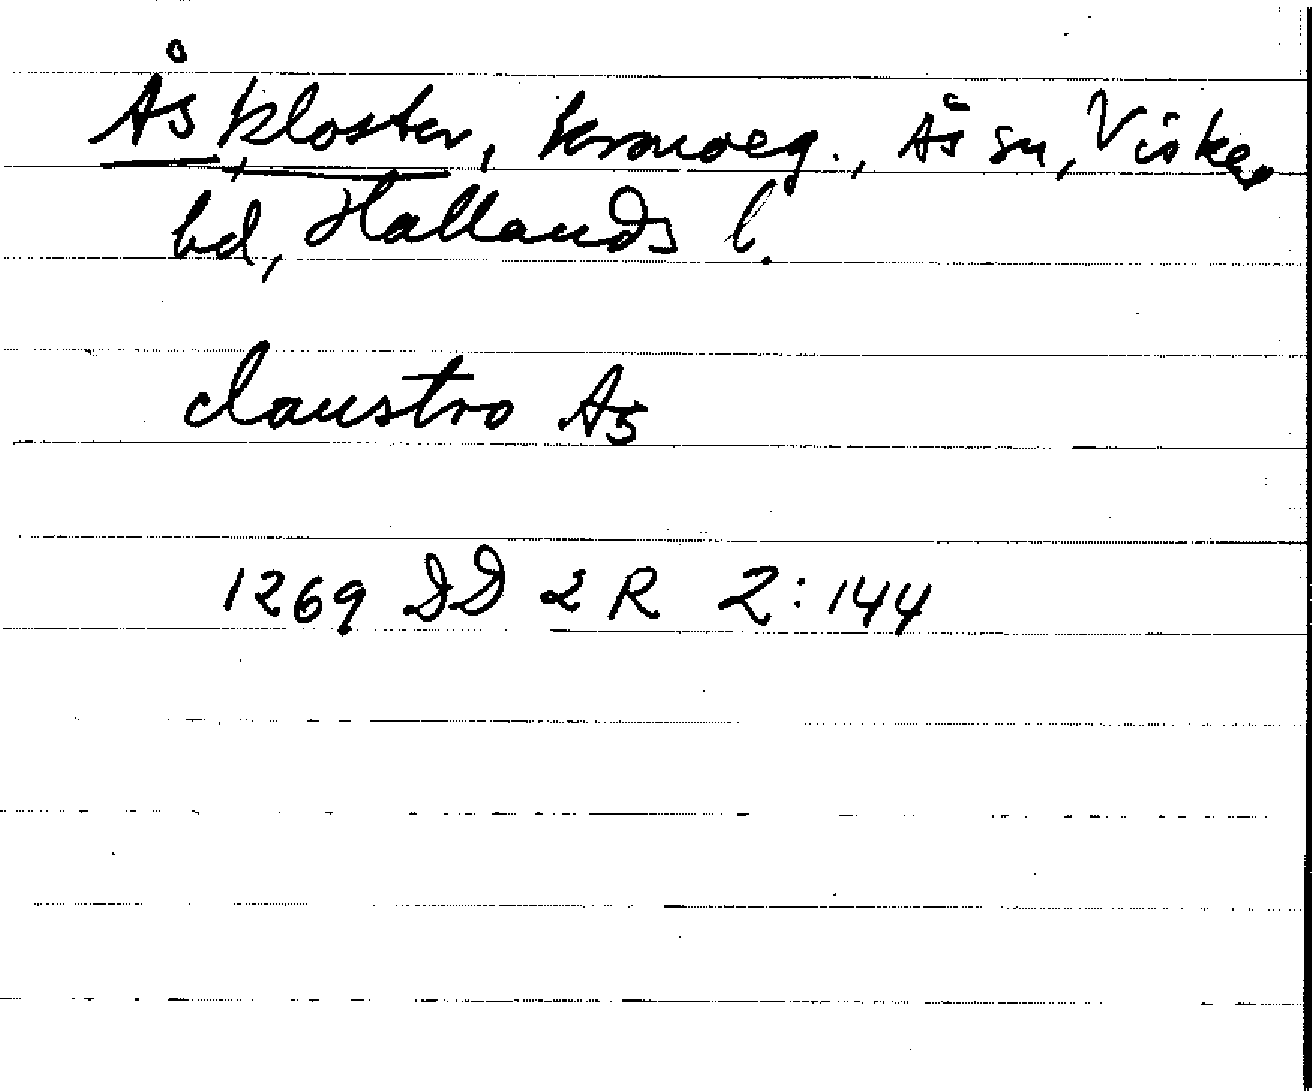 Ås kloster, kronoeg., Ås sn, Viske
hd, Hallands l.
claustro As
1269 DD 2 R 2:144